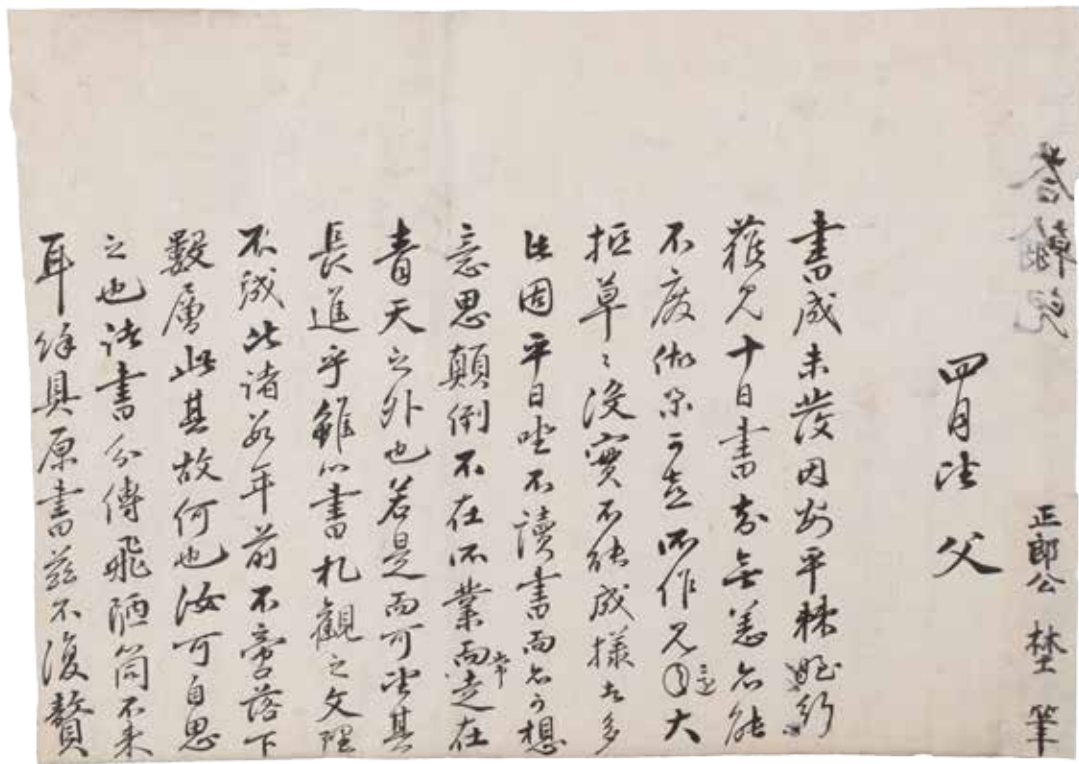 答兒
正郎公 筆
四月 父
書成未發因安平行
獲見十日書知無恙能
不廢做業可喜所作大
抵草〻沒實不能成樣者多
此因平日坐不讀書而可想
意思顚倒不在所業而常走在
靑天之外也若是而可望其
長進乎雖以書札觀之文理
不成比諸數年前不啻落下
數層此其故何也汝可自思
之也諸書分傳飛陋筒不來
耳餘具原書玆不復贅